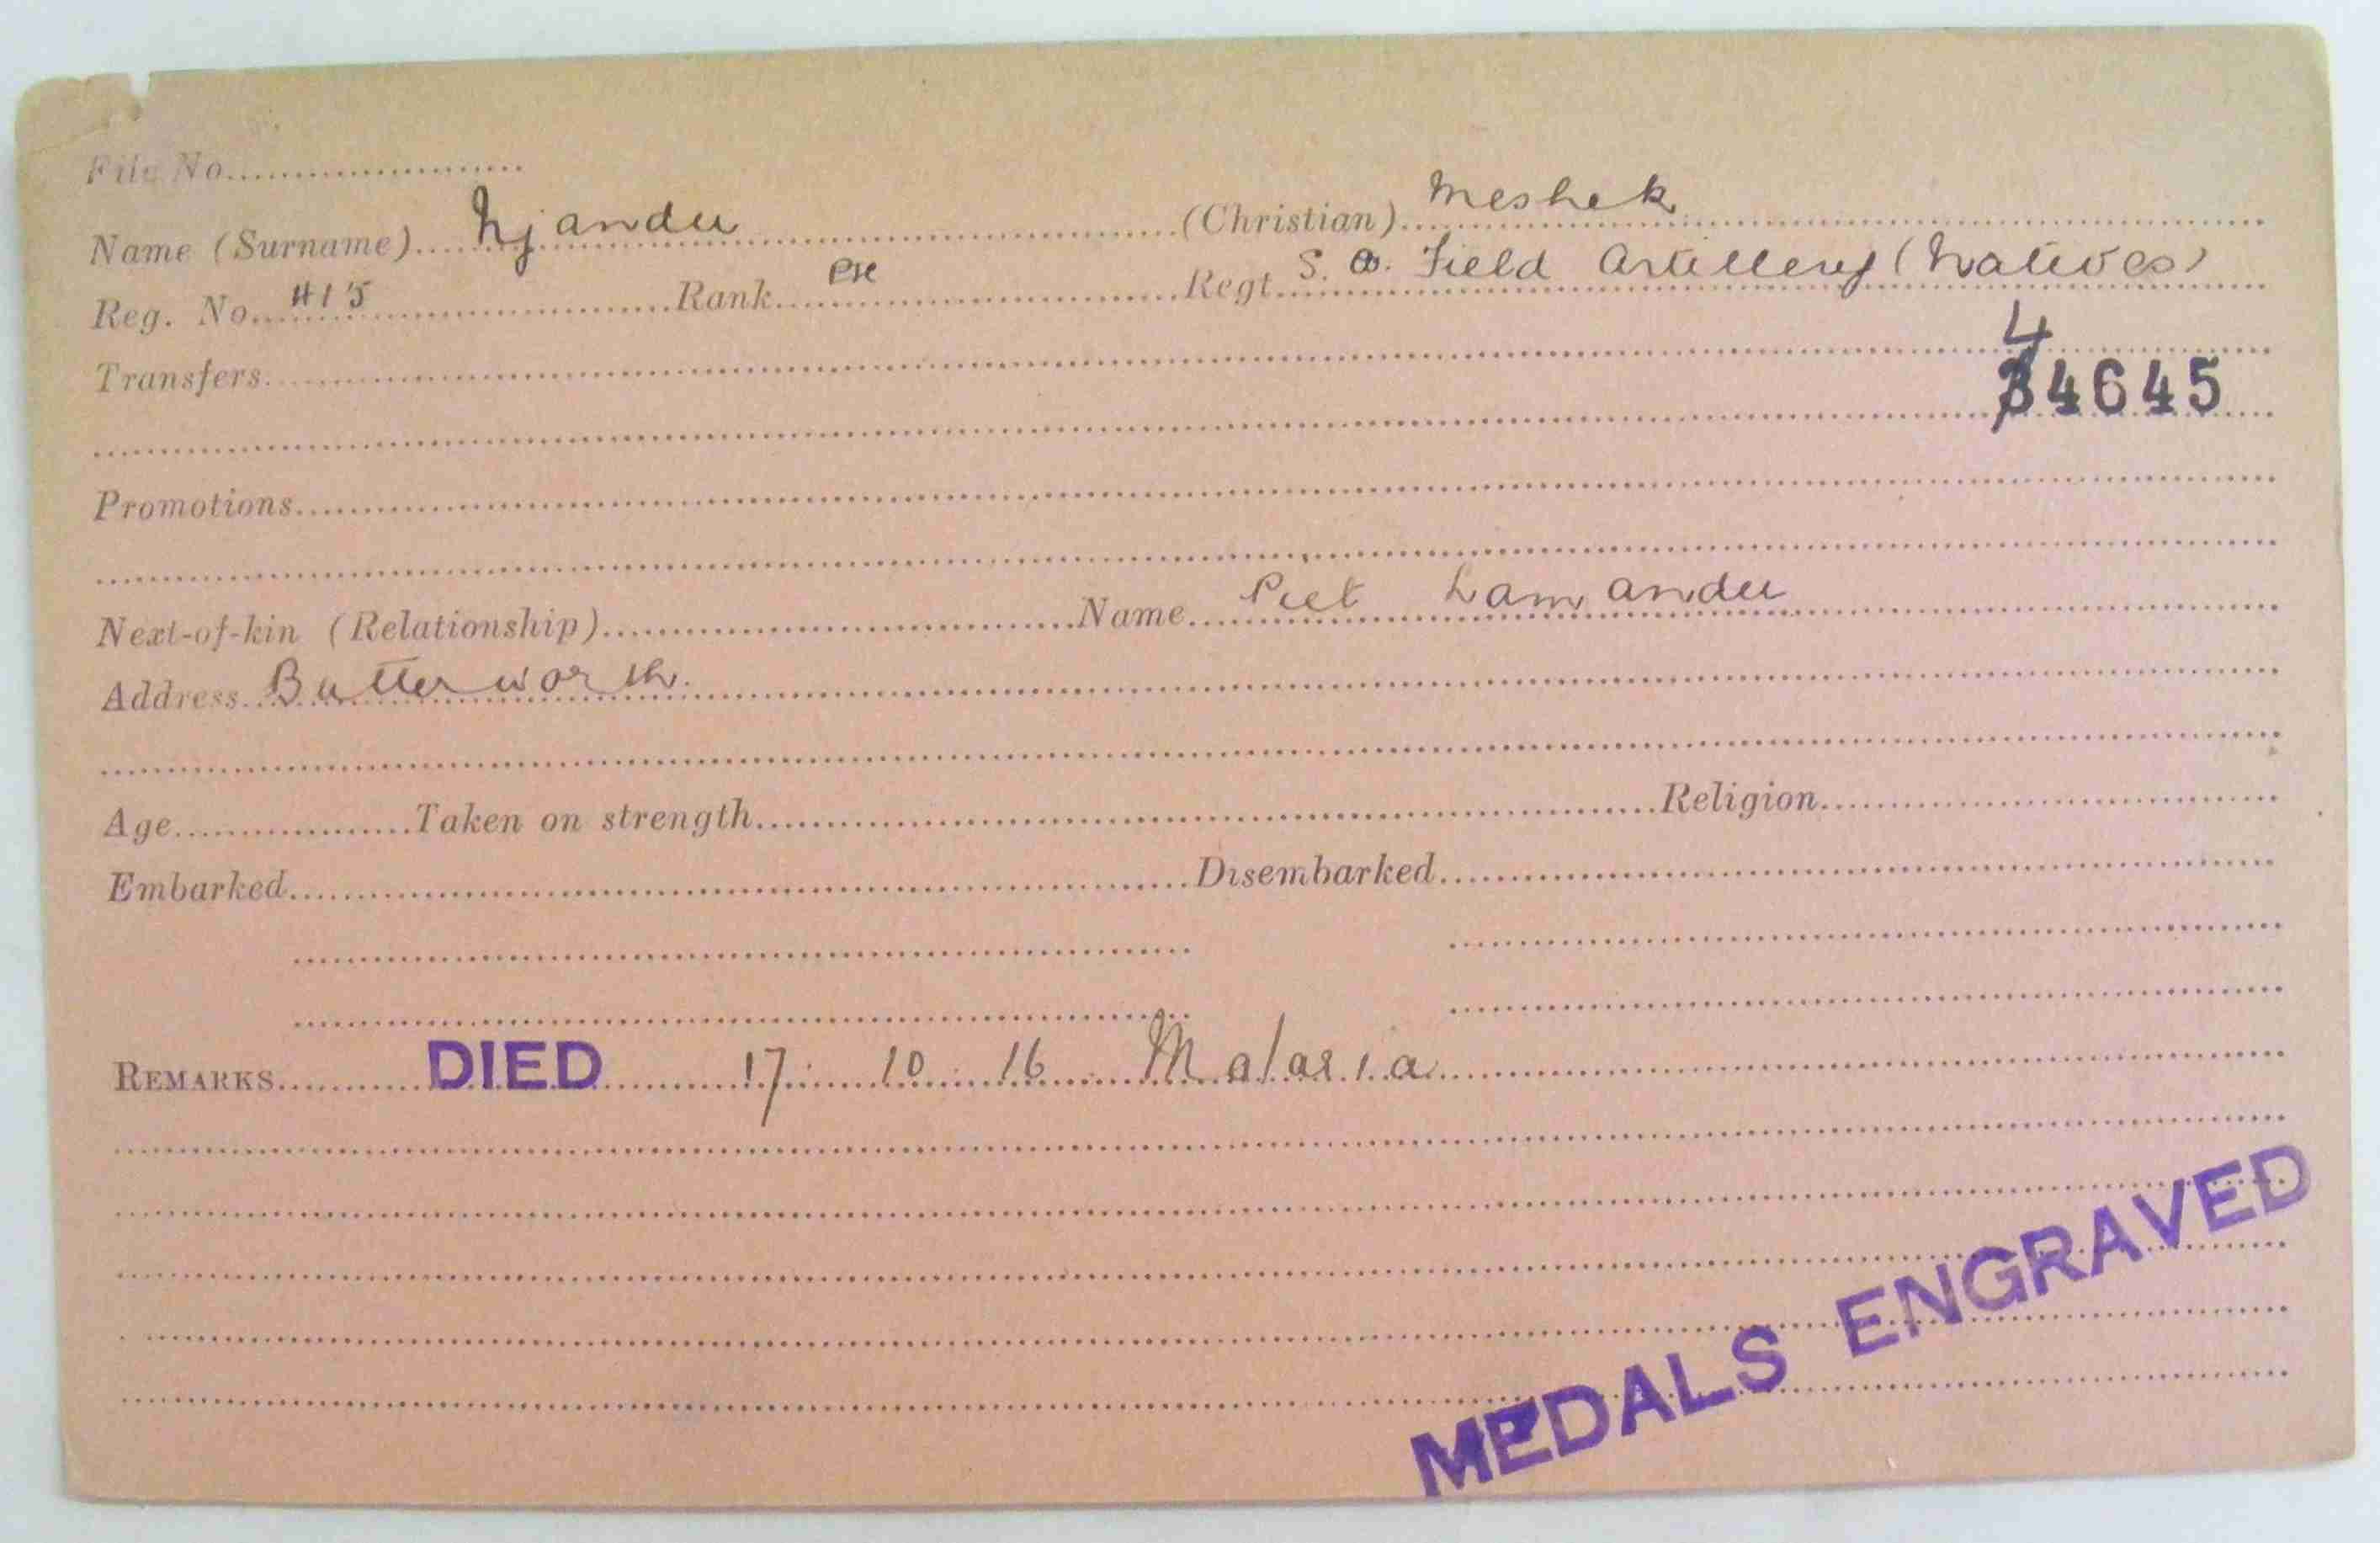 File No.
Name (Surname) Njandu (Christian) Meshek
Reg. No. 415 Rank Pte Regt. S. A. Field Artillery (Natives)
Transfers
4
34645
Promotions
Next-of-kin (Relationship) Name Piet
Address Butterworth.
Age Taken on strength Religion
Embarked Disembarked
REMARKS DIED 17 10 16 Malaria
MEDALS ENGRAVED